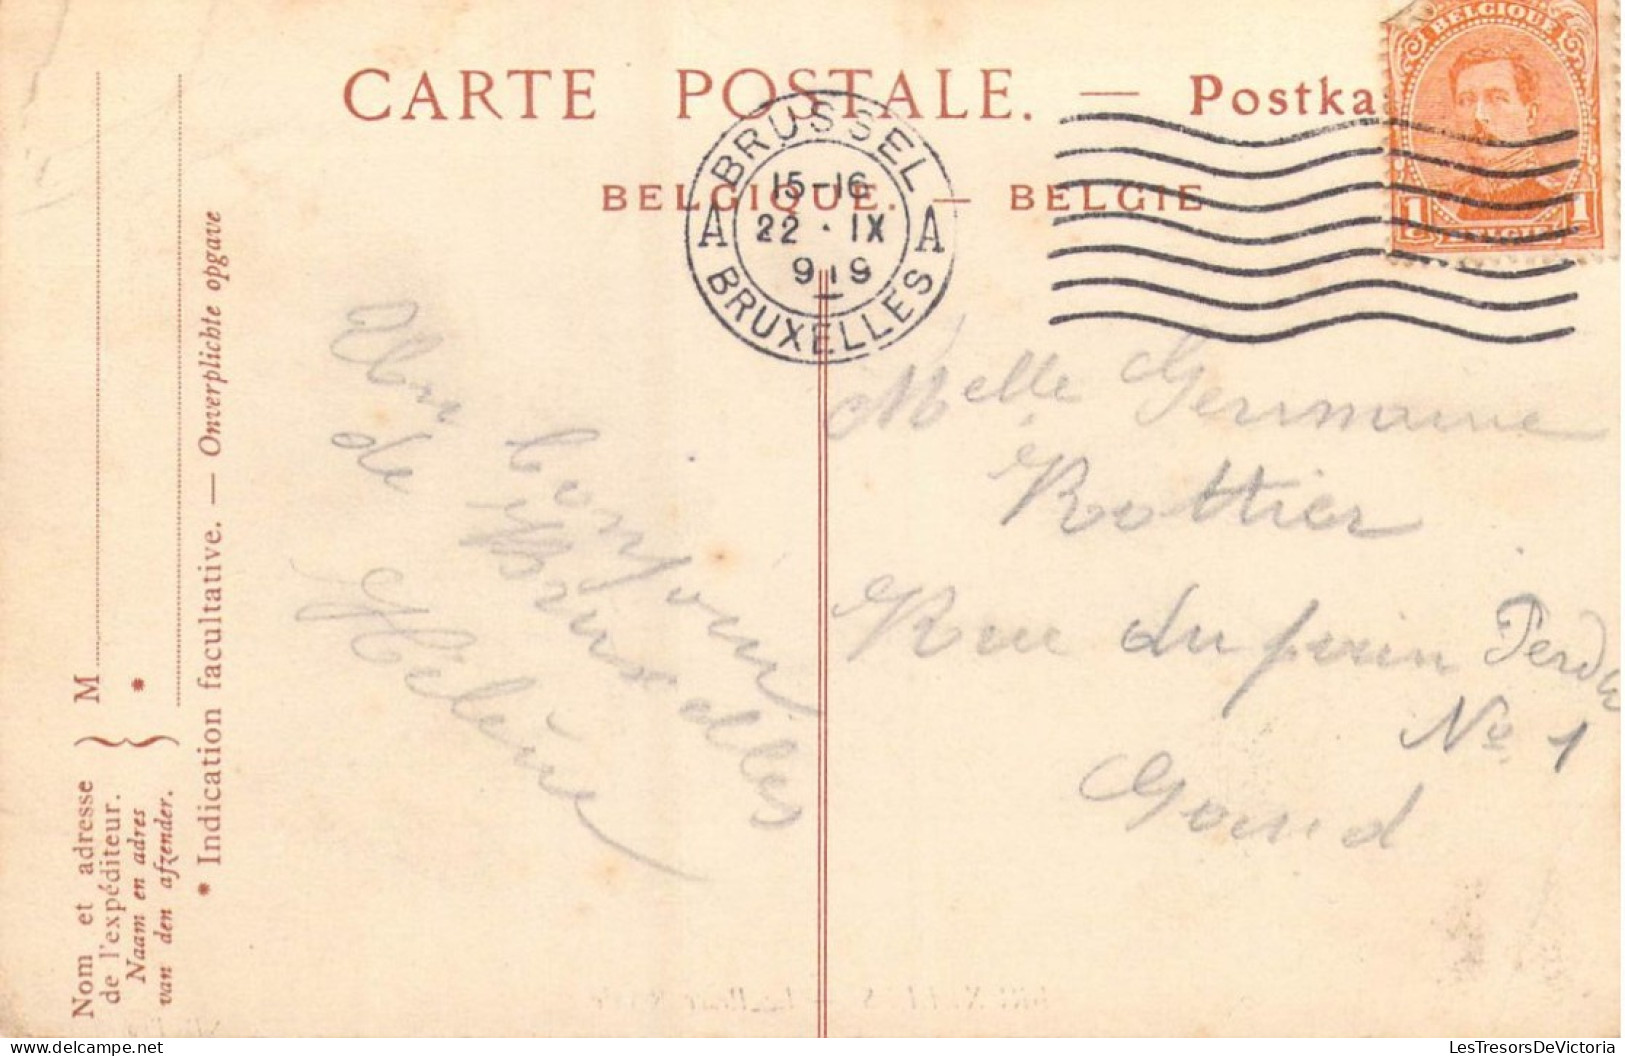 CARTE POSTALE. — Postka
BELGIQUE. — BELGIE
BELGIQUE
1 1
BELGIË
BRUSSEL
15-16
A 22 · IX A
919
BRUXELLES
Un bonjour
de Bruxelles
Hélène
Melle Germaine
Rottier
Rue du pain Perdu
No 1
Gand
Nom et adresse
de l'expéditeur.
Naam en adres
van den afzender.
M
*
* Indication facultative. — Onverplichte opgave
LesTresorsDeVictoria
www.delcampe.net